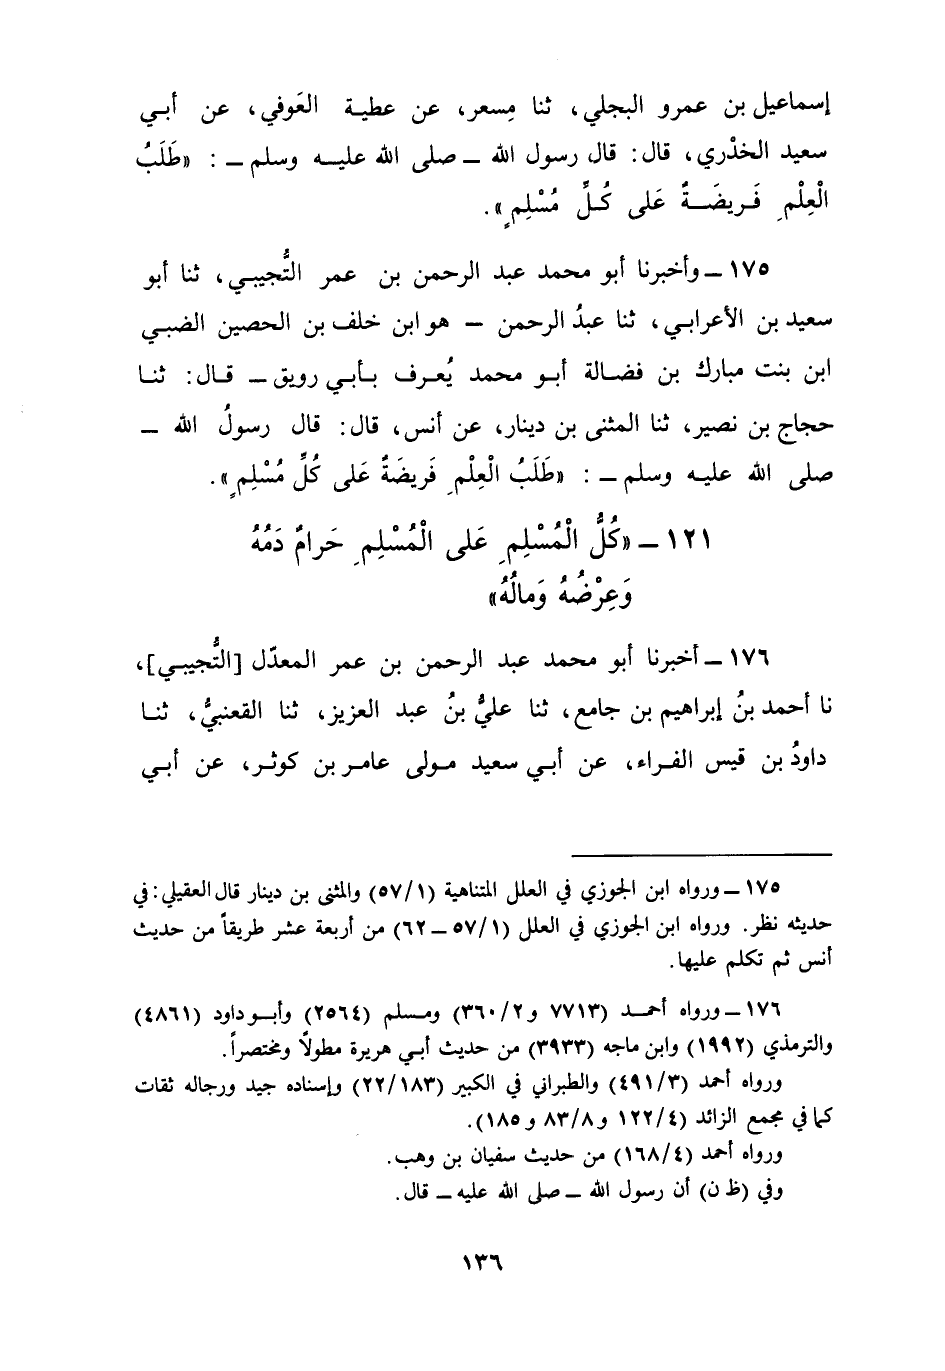 إسماعيل بن عمرو البجلي، ثنا مِسعر، عن عطية العَوفي، عن أبي
سعيد الخدْري، قال: قال رسول الله ــ صلى الله عليه وسلم ــ : «طَلَبُ
الْعِلْمِ فَريضَةٌ عَلى كُلِّ مُسْلِمٍ».
١٧٥ ــ وأخبرنا أبو محمد عبد الرحمن بن عمر التُّجيبي، ثنا أبو
سعيد بن الأعرابي، ثنا عبدُ الرحمن ــ هو ابن خلف بن الحصين الضبي
ابن بنت مبارك بن فضالة أبو محمد يُعرف بأبي رويق ــ قال: ثنا
حجاج بن نصير، ثنا المثنى بن دينار، عن أنس، قال: قال رسولُ الله ــ
صلى الله عليه وسلم ــ : «طَلَبُ الْعِلْمِ فَريضَةٌ عَلى كُلِّ مُسْلِمٍ».
١٢١ ــ «كُلُّ الْمُسْلِمِ عَلى الْمُسْلِمِ حَرامٌ دَمُهُ
وَعِرْضُهُ وَمالُهُ»
١٧٦ ــ أخبرنا أبو محمد عبد الرحمن بن عمر المعدّل [التُّجيبي]،
نا أحمد بنُ إبراهيم بن جامع، ثنا عليُّ بنُ عبد العزيز، ثنا القعنبيُّ، ثنا
داودُ بن قيس الفراء، عن أبي سعيد مولى عامر بن كوثر، عن أبي
١٧٥ ــ ورواه ابن الجوزي في العلل المتناهية (٥٧/١) والمثنى بن دينار قال العقيلي: في
حديثه نظر. ورواه ابن الجوزي في العلل (٥٧/١ ــ ٦٢) من أربعة عشر طريقاً من حديث
أنس ثم تكلم عليها.
١٧٦ ــ ورواه أحمد (٧٧١٣ و٣٦٠/٢) ومسلم (٢٥٦٤) وأبو داود (٤٨٦١)
والترمذي (١٩٩٢) وابن ماجه (٣٩٣٣) من حديث أبي هريرة مطولاً ومختصراً.
ورواه أحمد (٤٩١/٣) والطبراني في الكبير (٢٢/١٨٣) وإسناده جيد ورجاله ثقات
كما في مجمع الزائد (١٢٢/٤ و٨٣/٨ و١٨٥).
ورواه أحمد (١٦٨/٤) من حديث سفيان بن وهب.
وفي (ظ ن) أن رسول الله ــ صلى الله عليه ــ قال.
١٣٦